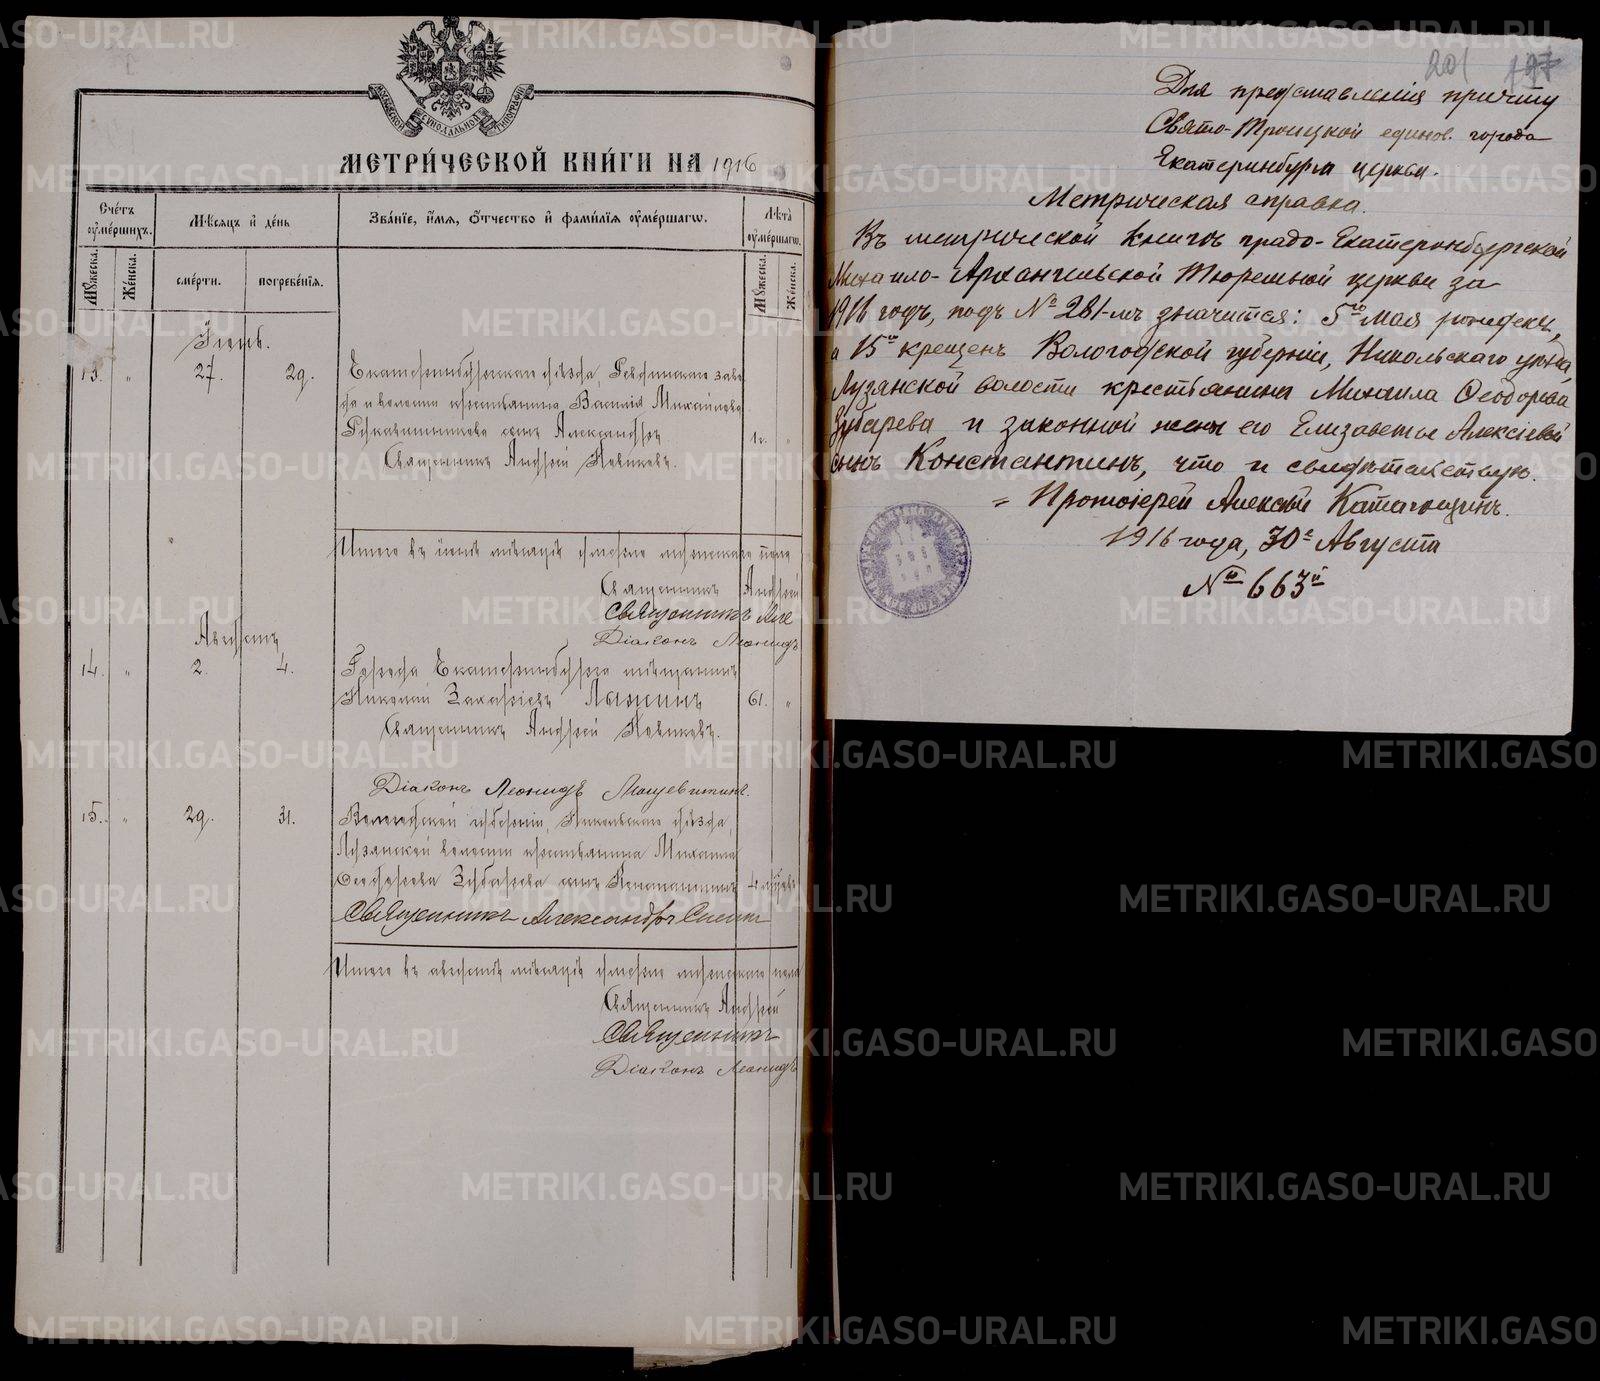 МОСКОВСКОЙ СѴНОДАЛЬНОЙ ТИПОГРАФІИ
МЕТРИ́ЧЕСКОЙ КНИ́ГИ НА 1916
Сче́тъ ѹ҆ме́ршихъ.
Мѣ́сяцъ и҆ де́нь
Зва́нїе, и҆́мя, ѻ҆́тчество и҆ фами́лїя ѹ҆ме́ршагѡ.
Лѣ́та ѹ҆ме́ршагѡ.
Мꙋ́жеска.
Же́нска.
сме́рти.
погребе́нїя.
Мꙋ́жеска.
Же́нска.
Іюль.
13. " 27. 29. Екатеринбургскаго уѣзда, Ревдинскаго заво
да и волости крестьянина Василія Михайлова
сынъ Александръ
Священникъ Андрей Новиковъ.
Итого въ іюлѣ мѣсяцѣ умерло мужскаго пола
Священникъ Андрей
Священникъ Але
Діаконъ Леонидъ
Августъ
14. " 2. 4. Города Екатеринбурга мѣщанинъ
Николай Захаріевъ 61. "
Священникъ Андрей Новиковъ.
Діаконъ Леонидъ
15. " 29. 31. Вологодской губерніи, Никольскаго уѣзда,
Лузанской волости крестьянина Михаила
Ѳеодорова Зубарева сынъ Константинъ
Священникъ Александръ
Итого въ августѣ мѣсяцѣ умерло мужскаго пола
Священникъ Андрей
Священникъ
Діаконъ Леонидъ
201 197
Для представленія причту
Свято-Троицкой единов. города
Екатеринбурга церкви.
Метрическая справка.
Въ метрической книгѣ градо-Екатеринбургской
Михаило-Архангельской Тюремной церкви за
1916 годъ, подъ № 281-мъ значится: 5го мая рожденъ,
а 15го крещенъ Вологодской губерніи, Никольскаго уѣзда,
Лузанской волости крестьянина Михаила Ѳеодорова
Зубарева и законной жены его Елизаветы Алексіевой
сынъ Константинъ, что и свидѣтельствую.
Протоіерей Алексій
1916 года, 30го Августа
№ 663й
METRIKI.GASO-URAL.RU